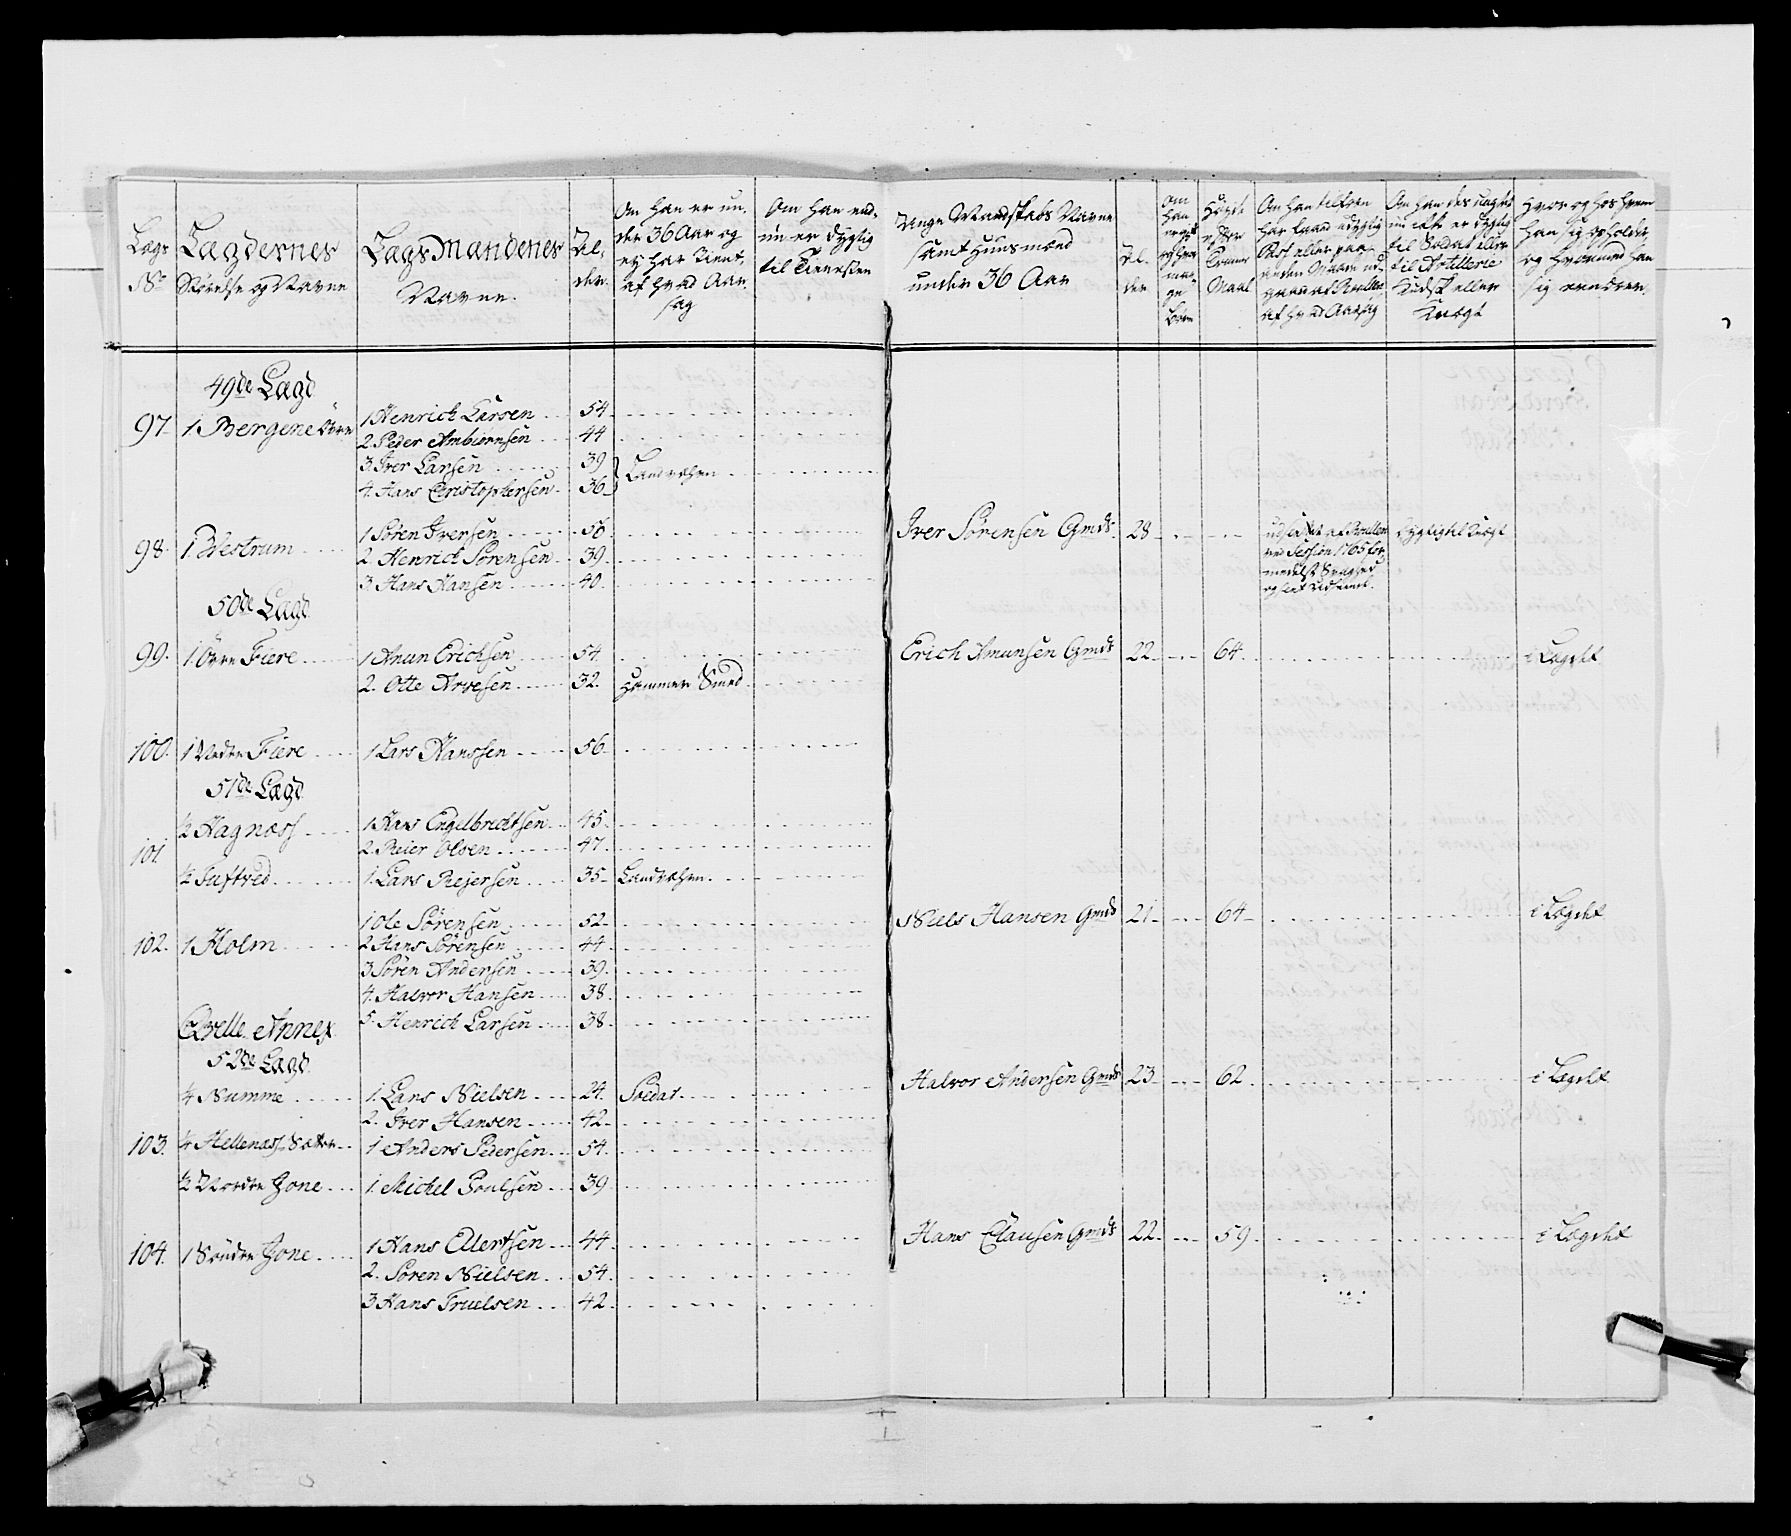 Lægs No
Lægdernes Størelse og Navne
Lægs Mandenes Navne.
Al-der.
Om han er un-der 36 Aar og ej har tient, af hvad Aar-sag
Om han end-nu er dygtig til Tienesten
Unge Mandskabs Navne samt Huusmænd under 36 Aar
Al-der
Om han er gift og hvor mange Børn
Høyde efter Tomme Maal
Om han tilforn har udgaaet af Rullen af hvad Aarsag
Om han des uagtet nu ikke er dygtig til Soldat eller til Artillerie Kudsk eller Knægt
Hvor og hos hvem han sig opholder og hvormed han sig ernærer.
49de Lægd
97. 1 Bergene Øvre 1 Henrich Larsen 54
2. Peder Ambiørnsen 44
3. Iver Larsen 39
4. Hans Christophersen 36 Landværn
98. 1 Westrum 1 Søren Iversen 56 Iver Sørensen Gmds. 28 udsat af Rullen ved Session 1765 for-medelst Svaghed Dygtig til Knægt
2. Henrich Sørensen 39
3. Hans Hansen 40
50de Lægd
99. 1. Øvre Fiere 1 Amun Erichsen 54 Erich Amunsen Gmds 22 64 i Lægdet
2. Otte Arvesen 32. Hammer Smed
100. 1 Nedre Fiere 1 Lars Hanssen 56
51de Lægd
101 ½ Hagnæss 1 Hans Engelbrechtsen 45
2. Reier Olsen 47
½ Tuftred 1. Lars Rejersen 35 Landværn
102. 1 Holm 1 Ole Sørensen 52 Niels Hansen Gmds 21 64 i Lægdet
2 Hans Sørensen 44
3 Søren Andersen 39
4. Halvor Hansen 38
5. Henrich Larsen 38
Qvelle Annex
52de Lægd
¼ Numme 1. Lars Nielsen 24. Soldat Halvor Andersen Gmds 23 62 i Lægdet
2. Iver Hansen 42
103. ¼ Hellenæss Sættre 1 Anders Pedersen 54
½ Nordre Jone 1. Michel Poulsen 39
104. 1 Søndre Jone 1 Hans Ellertsen 44 Hans Clausen Gmds 22 59 i Lægdet
2. Søren Nielsen 54
3 Hans Truelsen 42